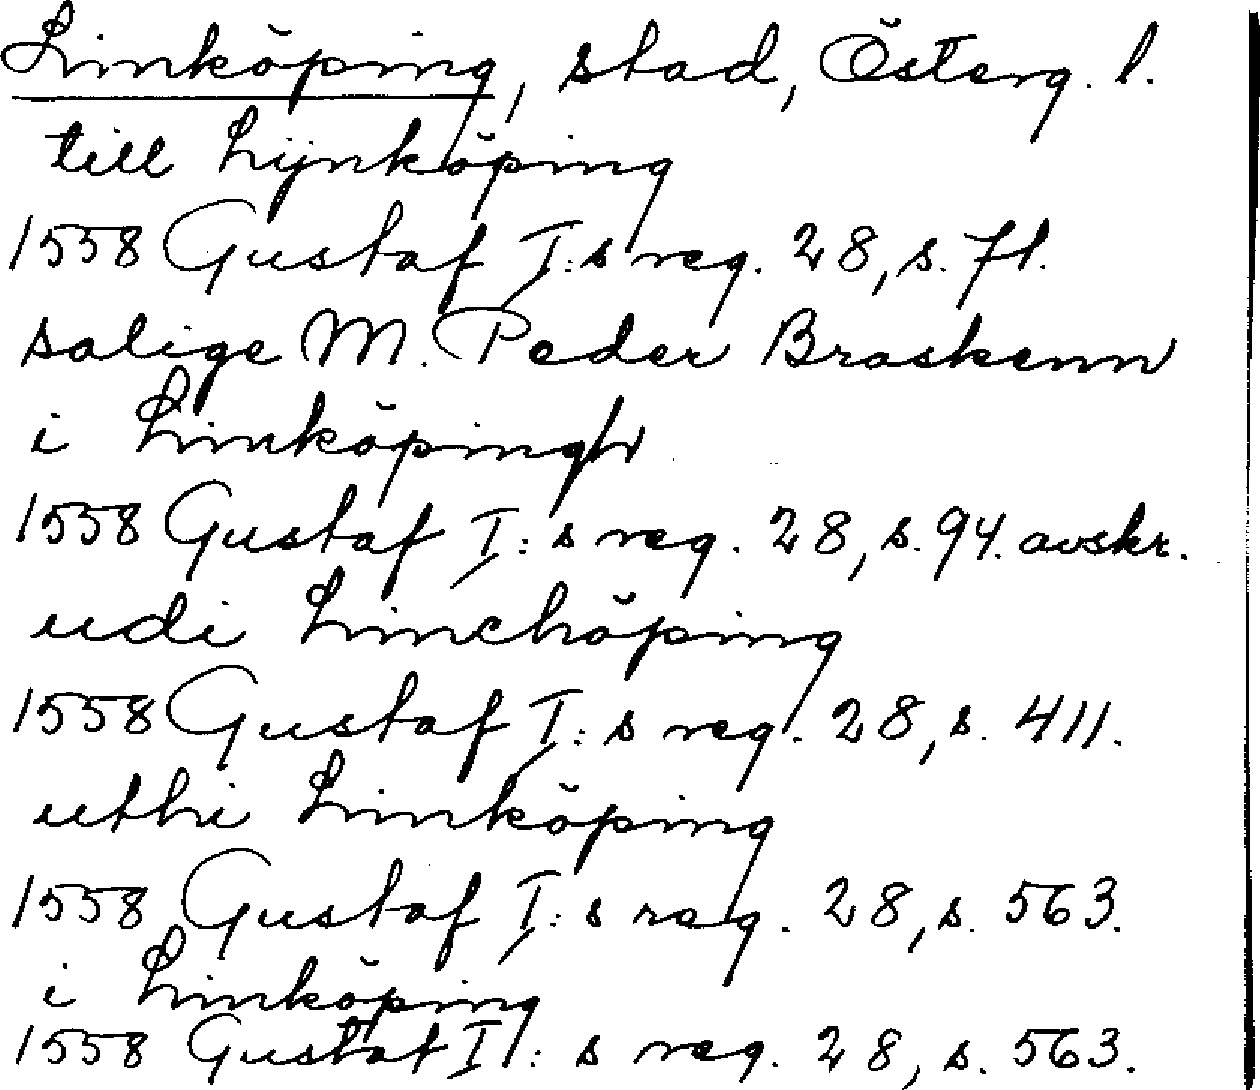 Linköping, stad, Österg. l.
till Lijnköping
1558 Gustaf I:s reg. 28, s. 71.
salige M. Peder Braskenn
i Linköpingh
1558 Gustaf I:s reg. 28, s. 94. avskr.
udi Linchöping
1558 Gustaf I:s reg. 28, s. 411.
uthi Linköping
1558 Gustaf I:s reg. 28, s. 563.
i Linköping
1558 Gustaf I:s reg. 28, s. 563.